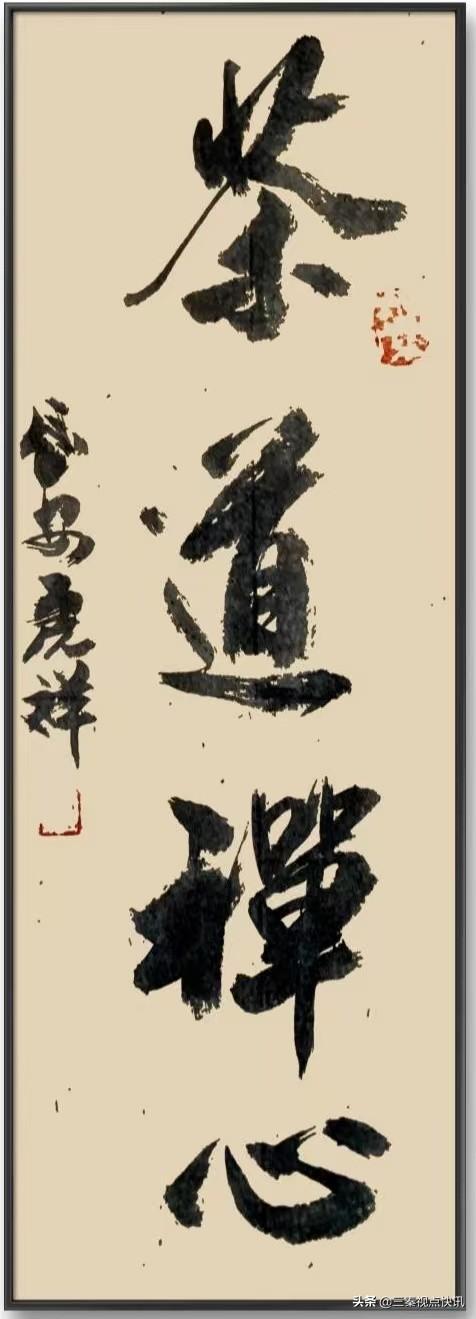 茶道禪心
長安虎祥
头条 @三秦视点快讯